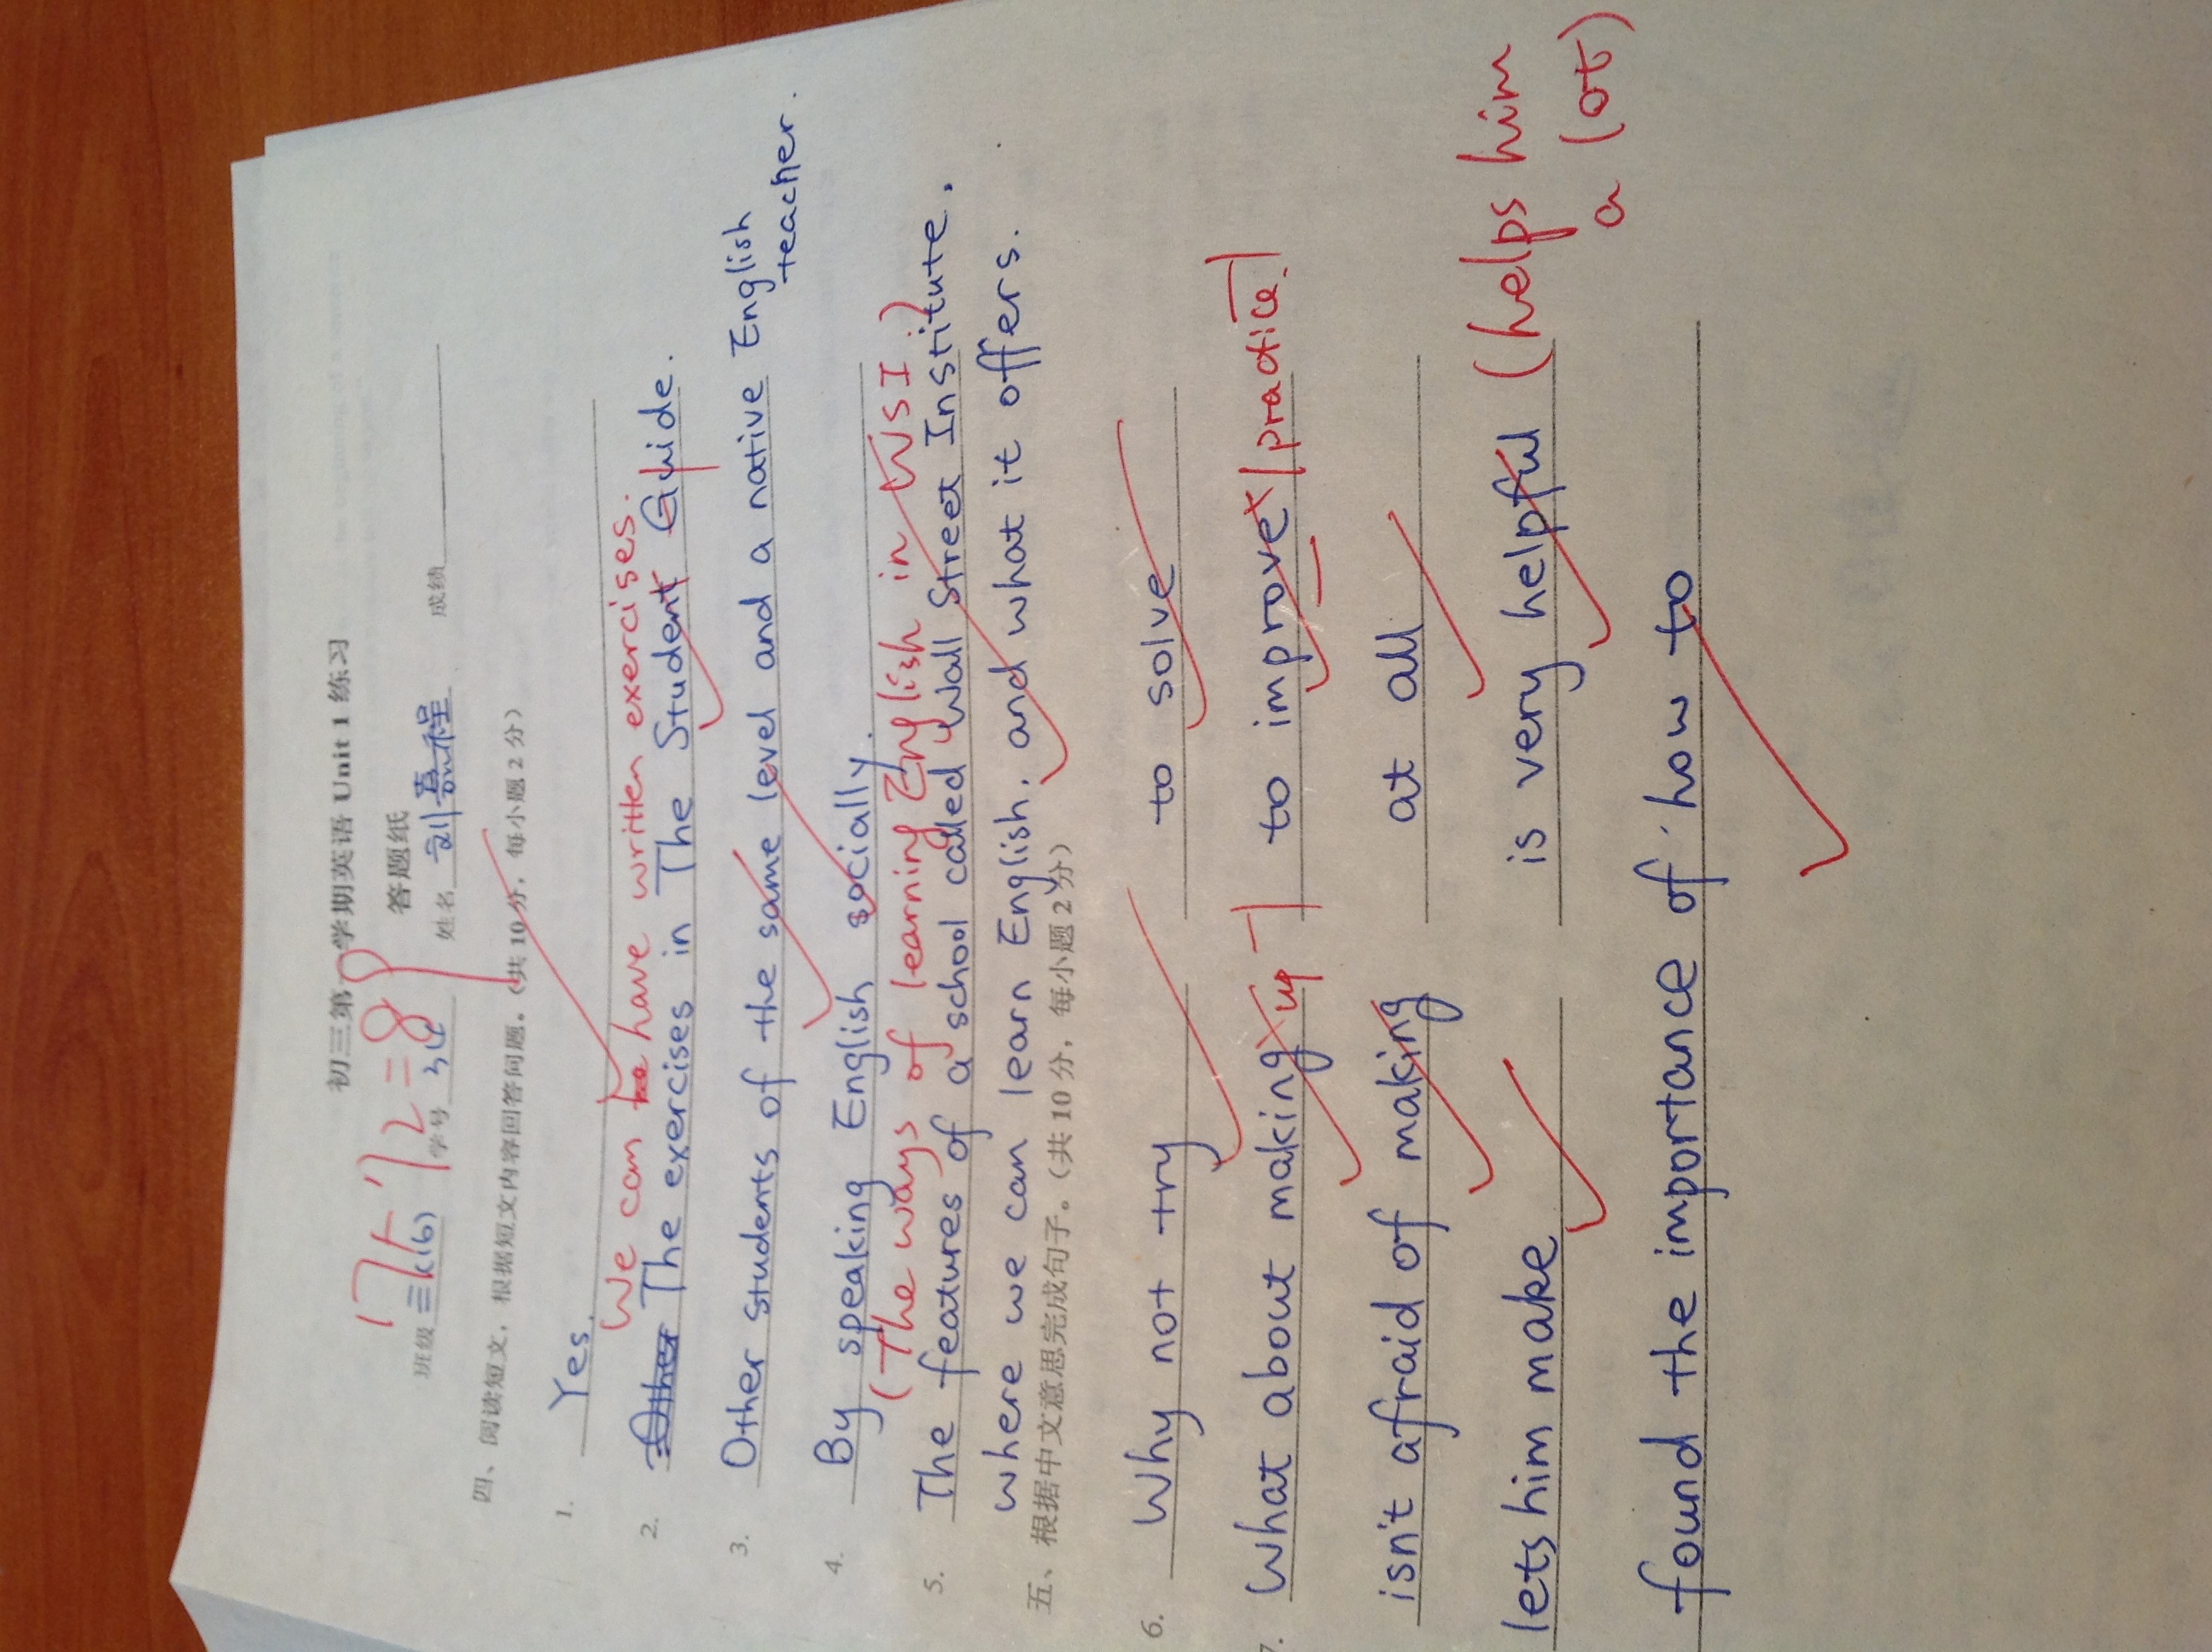 初三第一学期英语 Unit 1 练习
17+72=89
答题纸
班级 三(16) 学号 34 姓名 刘嘉程 成绩
四、阅读短文，根据短文内容回答问题。（共 10 分，每小题 2 分）
1. Yes.
We can have written exercises.
2. Other The exercises in The Student Guide.
3. Other students of the same level and a native English
teacher.
4. By speaking English socially.
(The ways of learning English in WSI.)
5. The features of a school called Wall Street Institute,
where we can learn English, and what it offers.
五、根据中文意思完成句子。（共 10 分，每小题 2 分）
6. Why not try to solve
7. What about making up -1 to improve / practice -1
isn't afraid of making at all
lets him make is very helpful (helps him
a lot)
found the importance of how to